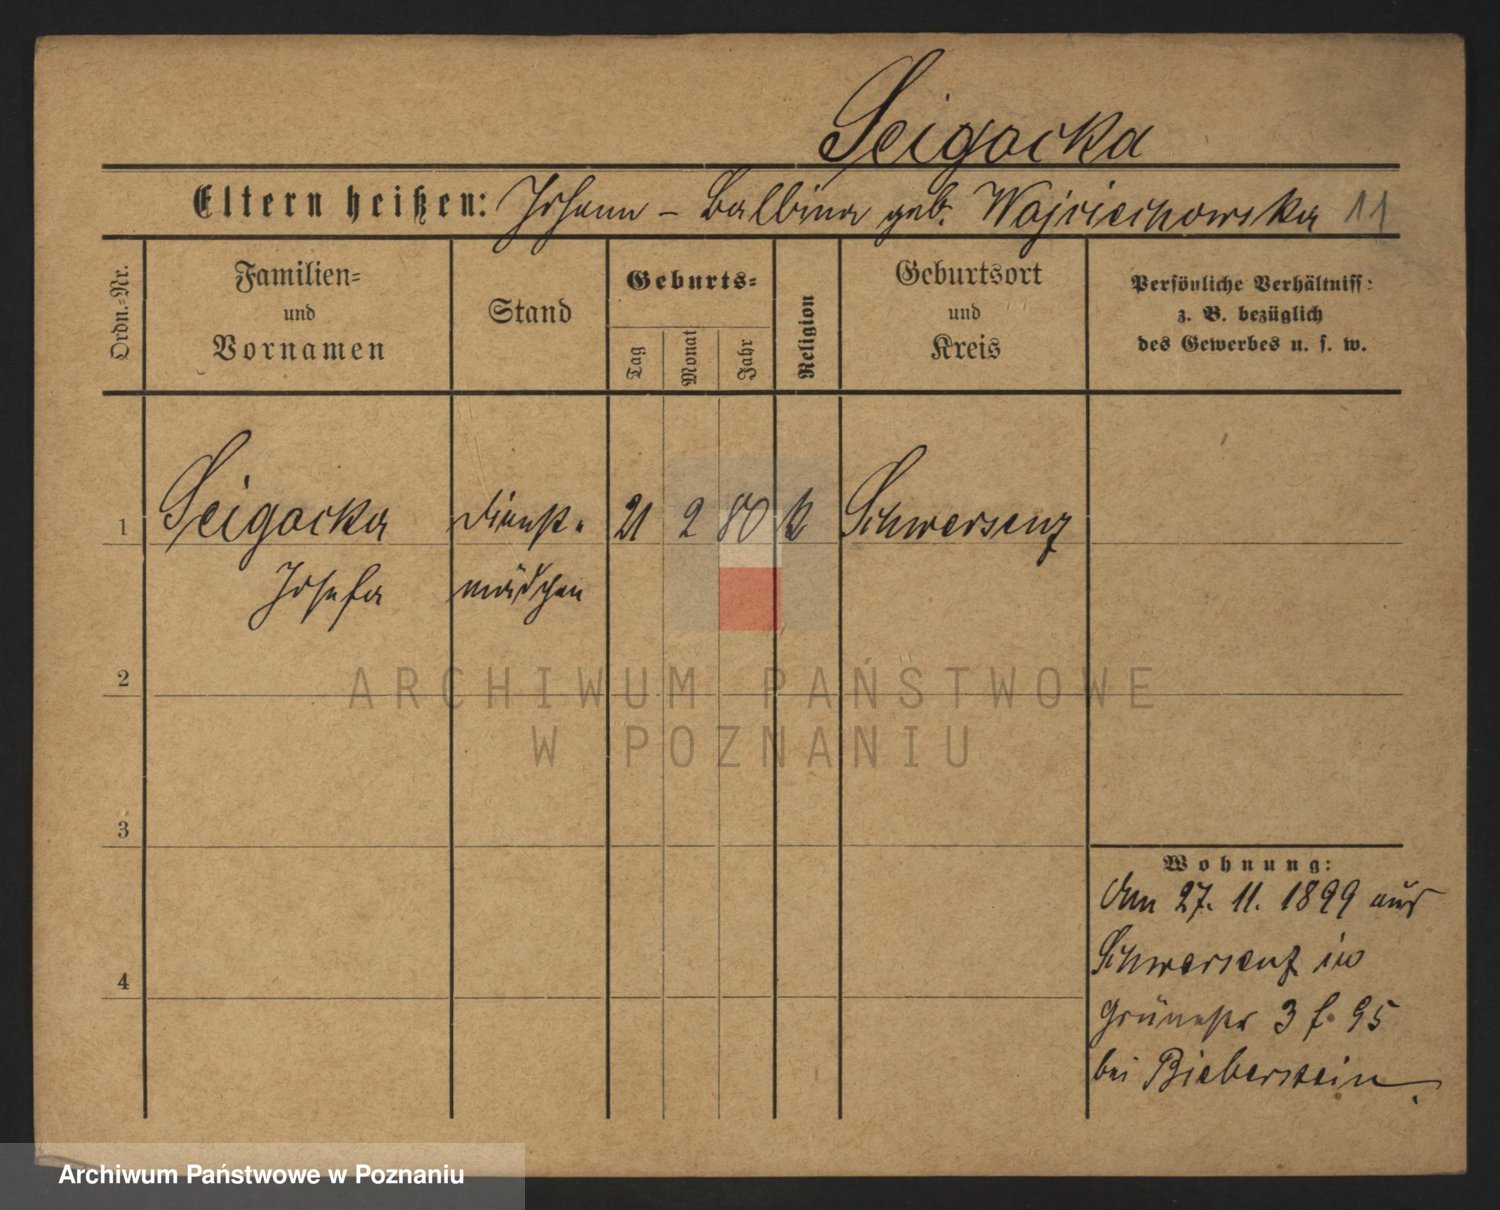 Seigocka
Eltern heißen: Johann - Balbina geb. Wojciechowska 11
Ordn.-Nr.
Familien- und Vornamen
Stand
Geburts-
Tag
Monat
Jahr
Religion
Geburtsort und Kreis
Persönliche Verhältniss:
z. B. bezüglich
des Gewerbes u. s. w.
1 Seigocka Dienst- 21 2 80 k Schwersenz
Josefa mädchen
2
ARCHIWUM PAŃSTWOWE
W POZNANIU
3
Wohnung:
Am 27. 11. 1899 aus
4
Schwersenz in
Grünestr 3 f. 95
bei Bieberstein.
Archiwum Państwowe w Poznaniu